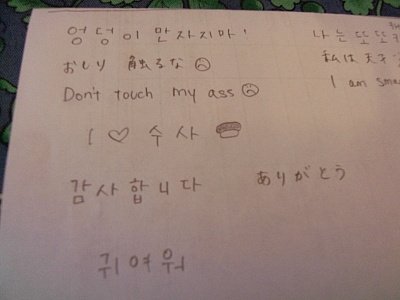 엉덩이 만자지마!
おしり 触るな
Don't touch my ass
I ♡ 수사
감사합니다
ありがとう
귀여워
나는 또또
私は天才
I am sma